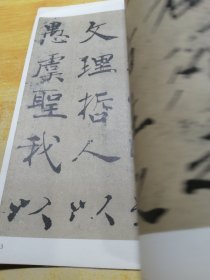 文理哲人以
愚虞聖我以
3